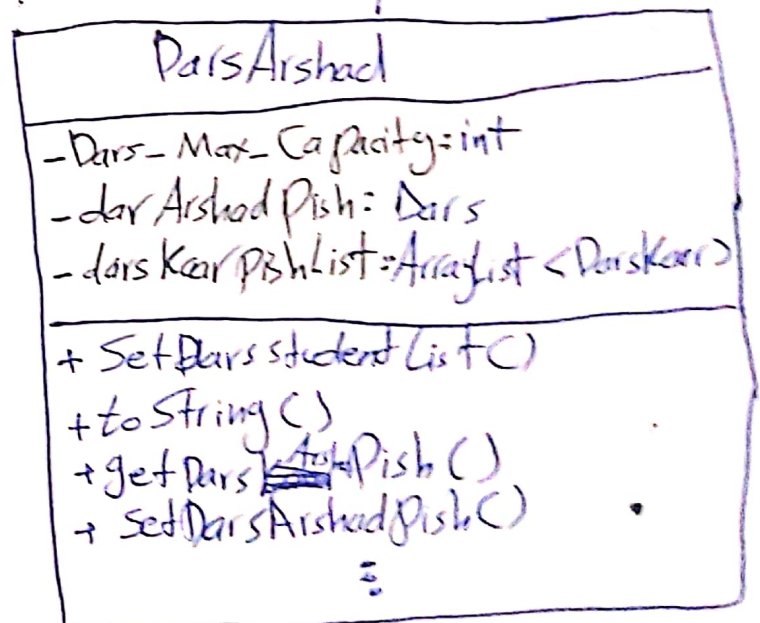 DarsArshad
-Dars_Max_Capacity:int
-darArshadPish: Dars
-darsKaarPishList:ArrayList<DarsKaar>
+ SetDarsstudentList()
+toString()
+getDarsArshPish()
+ SetDarsArshadPish()